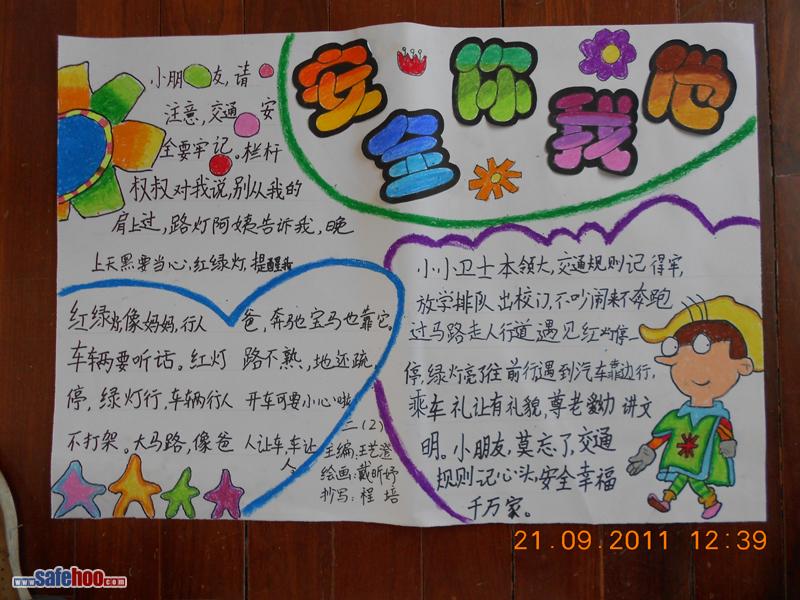 安全你我他
小朋友,请
注意,交通安
全要牢记。栏杆
权权对我说,别从我的
肩上过,路灯阿姨告诉我,晚
上天黑要当心,红绿灯,提醒我
红绿灯像妈妈,行人
车辆要听话。红灯
停,绿灯行,车辆行人
不打架。大马路,像爸
爸,奔驰宝马也靠它。
路不熟,地还疏,
开车可要小心啦
人让车,车让
人
二(2)
主编:王艺澄
绘画:戴昕妤
抄写:程培
小小卫士本领大,交通规则记得牢,
放学排队出校门,不吵闹来不奔跑
过马路走人行道遇见红灯停一
停,绿灯亮了往前行遇到汽车靠边行,
乘车礼让有礼貌,尊老爱幼讲文
明。小朋友,莫忘了,交通
规则记心头,安全幸福
千万家。
21.09.2011 12:39
www.safehoo.com